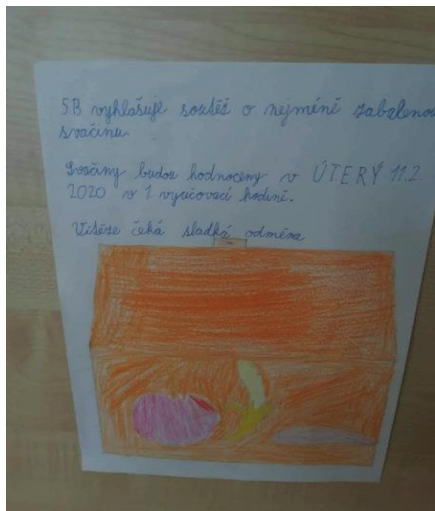 5.B vyhlašuje soutěž o nejméně zabalenou
svačinu.
Svačiny budou hodnoceny v ÚTERÝ 11.2.
2020 v 1. vyučovací hodině.
Vítěze čeká sladká odměna